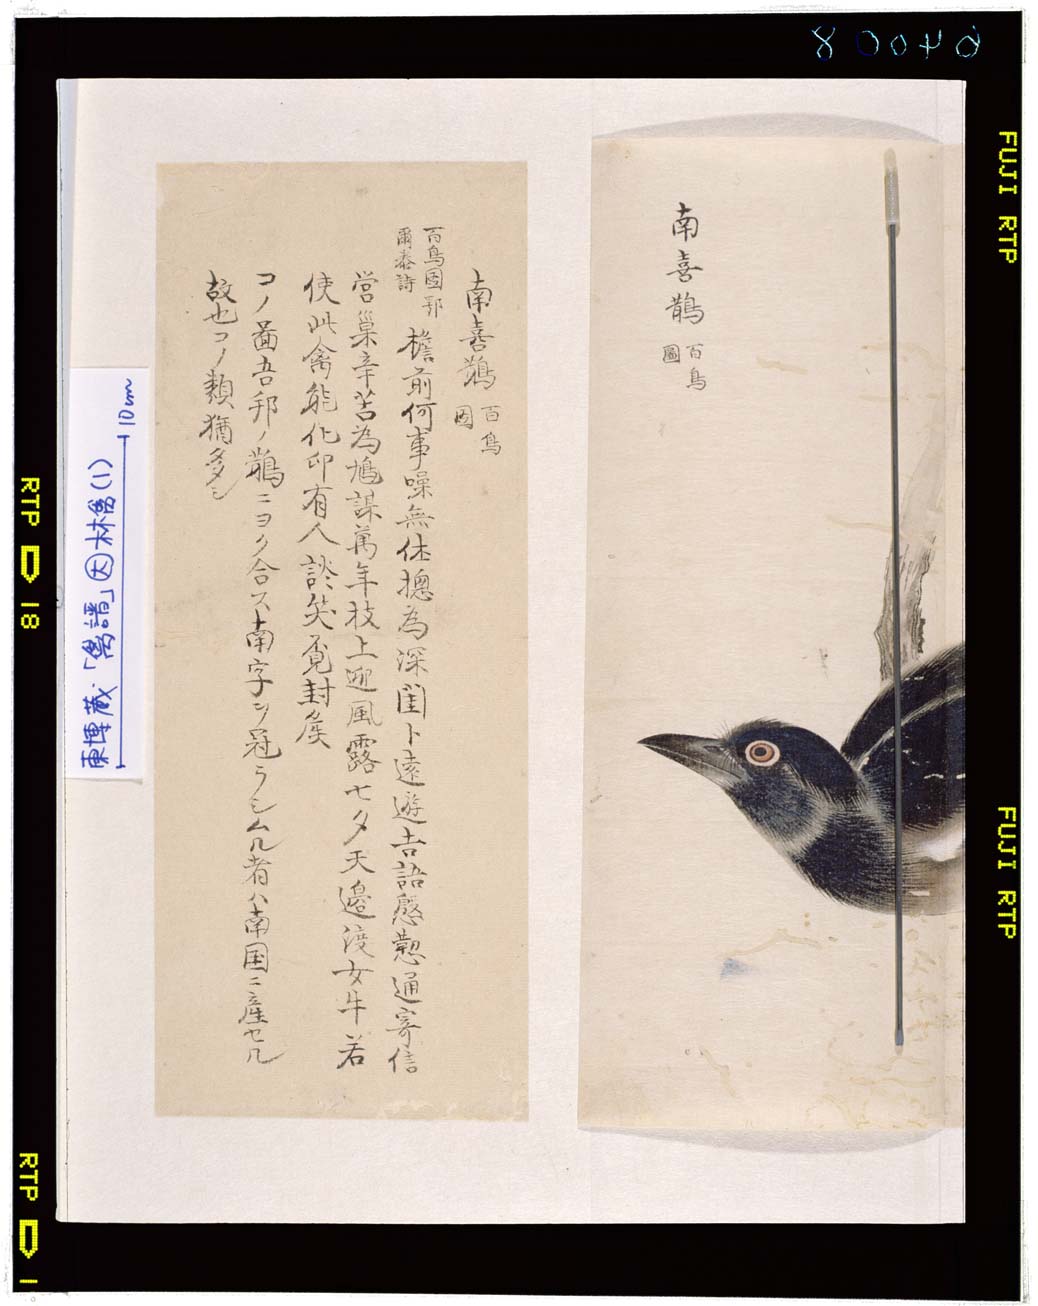 南喜鵲 百鳥圖
南喜鵲 百鳥圖
百鳥圖 鄂爾泰詩
檐前何事噪無休揔為深閨卜遠遊吉語慇懃通寄信
営巣辛苦為鳩謀萬年枝上迎風露七夕天邉渡女牛若
使此禽能化印有人談笑覓封矦
コノ啚吾邦ノ鵲ニヨク合ス南字ヲ冠ラシムル者ハ南国ニ産セル
故也コノ類猶多シ
東博蔵・「禽譜」 林禽(1)
10cm
FUJI RTP
FUJI RTP
RTP 18
RTP 1